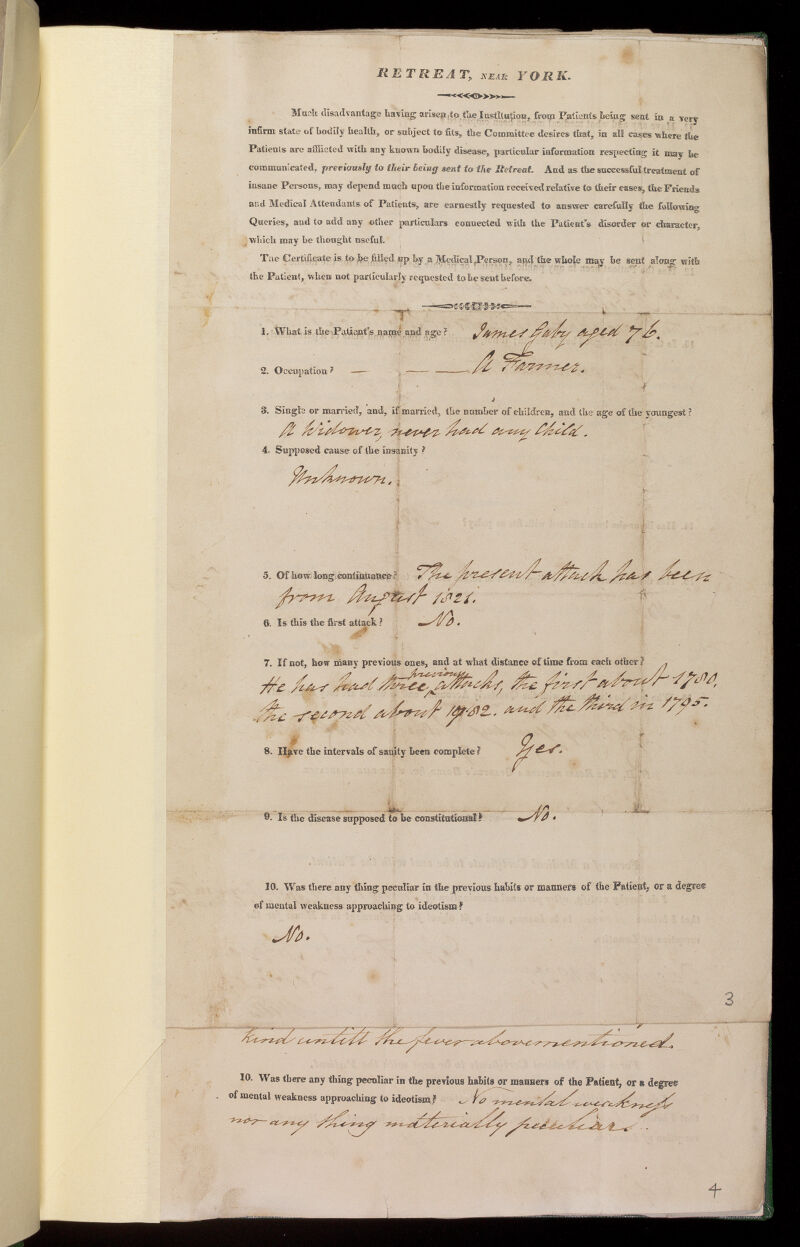 RETREAT, NEAR YORK.
Much disadvantage having arisen to the Institution, from Patients being sent in a very
infirm state of bodily health, or subject to fits, the Committee desires that, in all cases where the
Patients are afflicted with any known bodily disease, particular information respecting it may be
communicated, previously to their being sent to the Retreat. And as the successful treatment of
insane Persons, may depend much upon the information received relative to their cases, the Friends
and Medical Attendants of Patients, are earnestly requested to answer carefully the following
Queries, and to add any other particulars connected with the Patient's disorder or character,
which may be thought useful.
The Certificate is to be filled up by a Medical Person, and the whole may be sent along with
the Patient, when not particularly requested to be sent before.
1. What is the Patient's name and age? James Gaby aged 76.
2. Occupation? — — — A Farmer.
3. Single or married, and, if married, the number of children, and the age of the youngest?
A Widower, never had any Child.
4. Supposed cause of the insanity?
Unknown.
5. Of how long continuance? The present attack has been
from August 1821.
6. Is this the first attack? No.
7. If not, how many previous ones, and at what distance of time from each other?
He has had three previous attacks, the first about 1780,
the second about 1782. and the third in 1795.
8. Have the intervals of sanity been complete? Yes.
9. Is the disease supposed to be constitutional? No.
10. Was there any thing peculiar in the previous habits or manners of the Patient, or a degree
of mental weakness approaching to ideotism?
No.
3
kind untill the fever abovementioned.
10. Was there any thing peculiar in the previous habits or manners of the Patient, or a degree
of mental weakness approaching to ideotism? No mental weakness
nor any thing materially peculiar.
4